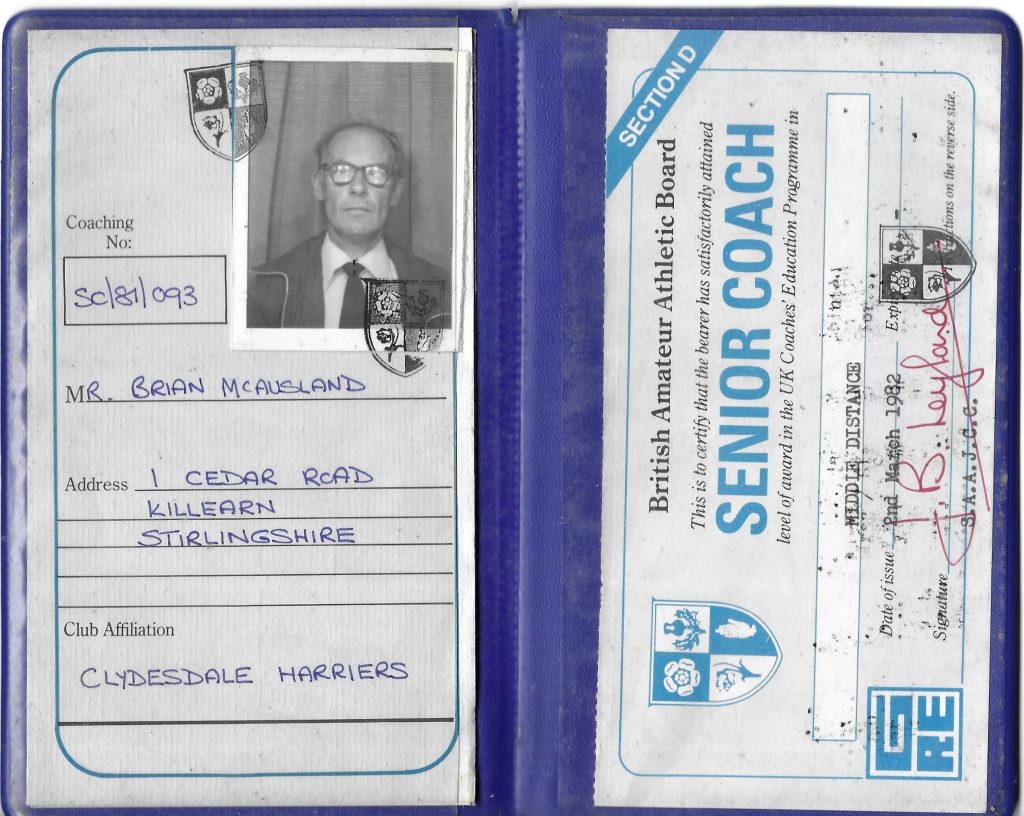 Coaching
No:
SC/81/093
MR. BRIAN MCAUSLAND
Address 1 CEDAR ROAD
KILLEARN
STIRLINGSHIRE
Club Affiliation
CLYDESDALE HARRIERS
SECTION D
British Amateur Athletic Board
This is to certify that the bearer has satisfactorily attained
SENIOR COACH
level of award in the UK Coaches' Education Programme in
MIDDLE DISTANCE
Date of issue 2nd March 1982
Signature
S.A.A.J.C.C.
ctions on the reverse side.
GRE